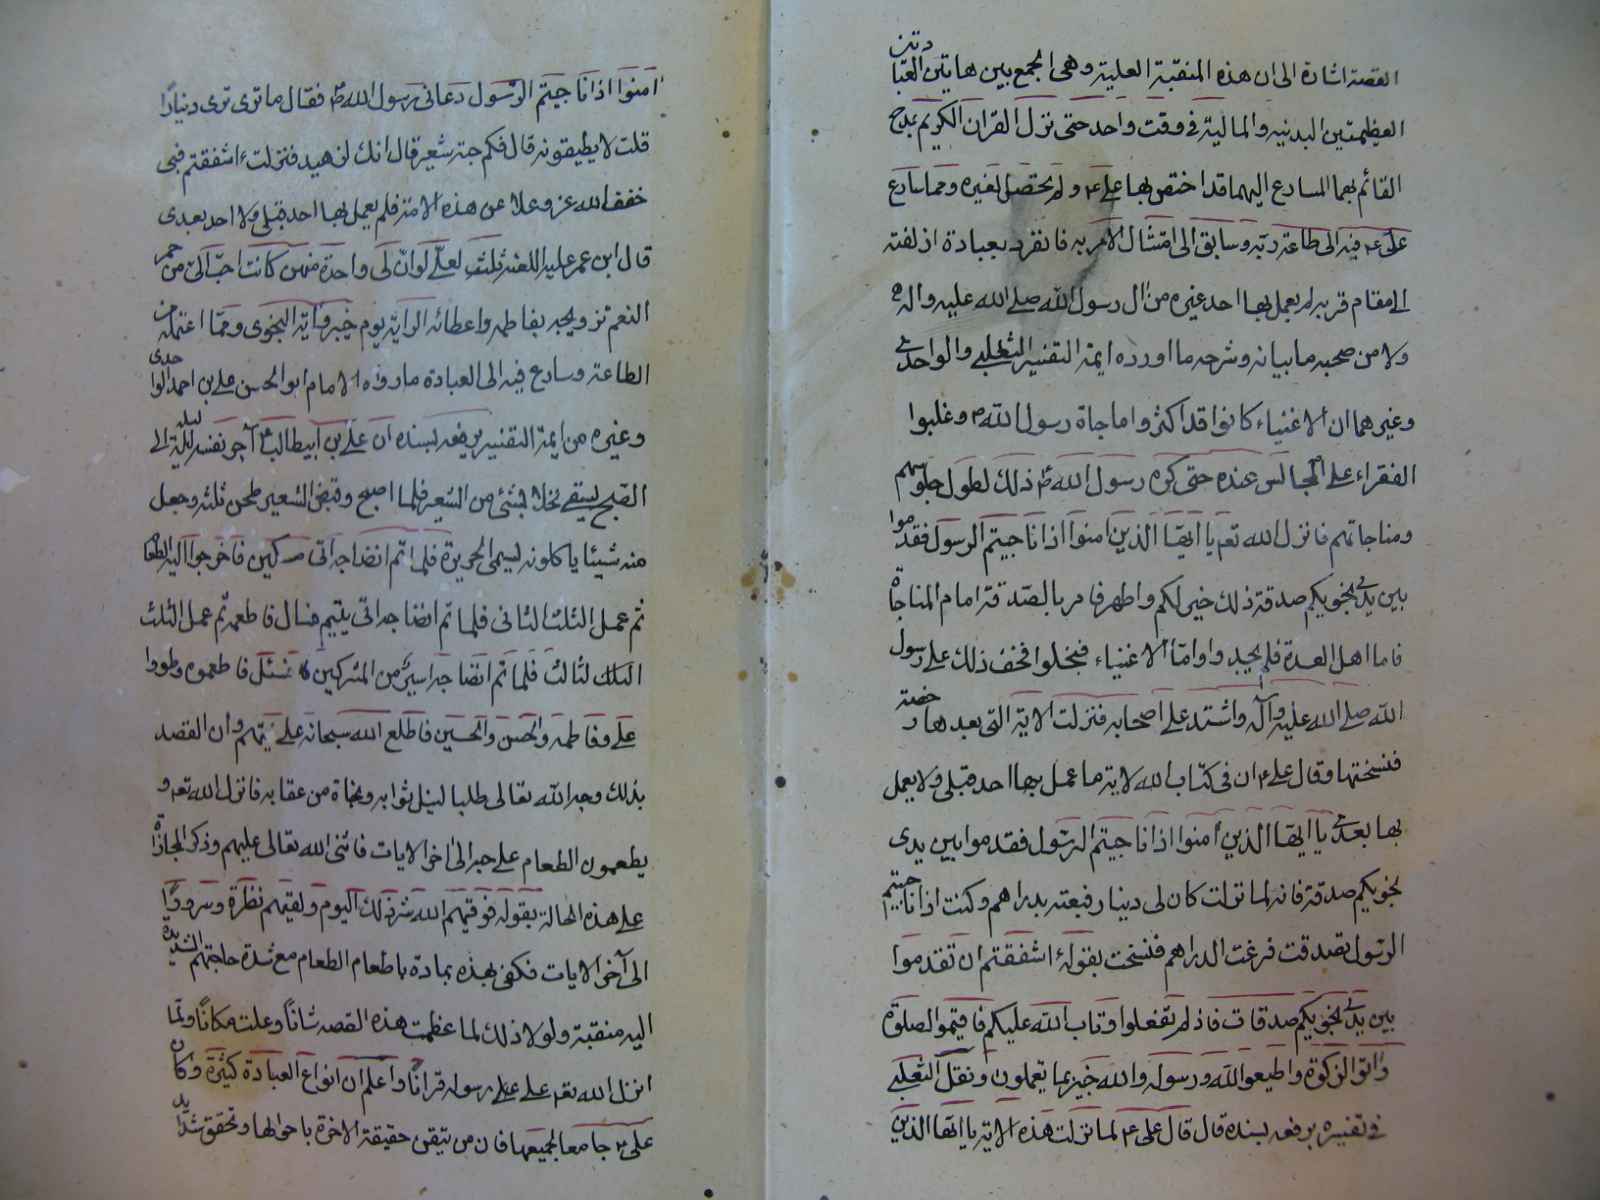 القصة اشارة الى ان هذه المنقبة العلية وهى الجمع بين هاتين العبادتين
العظيمتين البدنيه والمالية فى وقت واحد حتى نزل القران الكريم بمدح
القائم بهما المسارع اليهما قد اختص بها على ع ولم يحصل لغيره ومما سارع
على ع فيه الى طاعة ربه وسابق الى امتثال الامر به فانفرد بعبادة ازلفته
الى مقام قربه لم يعمل بها احد غيره من ال رسول الله صلى الله عليه واله
ولا من صحبه ما بيانه وشرحه ما اورده ايمة التفسير الثعلبى والواحدى
وغيرهما ان الاغنياء كانوا قد اكثروا مناجاة رسول الله ص وغلبوا
الفقراء على المجالس عنده حتى كره رسول الله ص ذلك لطول جلوسهم
ومناجاتهم فانزل الله تعم يا ايها الذين امنوا اذا ناجيتم الرسول فقدموا
بين يدى نجويكم صدقة ذلك خير لكم واطهر فامر بالصدقة امام المناجاة
فاما اهل العسرة فلم يجدوا واما الاغنياء فبخلوا فخف ذلك على رسول
الله صلى الله عليه وآله واشتد على اصحابه فنزلت الاية التى بعدها رخصة
فنسختها وقال على ع ان فى كتاب الله لاية ما عمل بها احد قبلى ولا يعمل
بها بعدى يا ايها الذين امنوا اذا ناجيتم الرسول فقدموا بين يدى
نجويكم صدقة فانه لما نزلت كان لى دينار فبعته بدراهم وكنت اذا ناجيتم
الرسول تصدقت فرغت الدراهم فنسخت بقوله ءاشفقتم ان تقدموا
بين يدى نجويكم صدقات فاذ لم تفعلوا وتاب الله عليكم فاقيموا الصلوة
واتوا الزكوة واطيعوا الله ورسوله والله خبير بما تعملون ونقل الثعلبى
فى تفسيره يرفعه بسنده قال قال على ع لما نزلت هذه الاية يا ايها الذين
امنوا اذا ناجيتم الرسول دعانى رسول الله ص فقال ما ترى ترى دينارا
قلت لا يطيقونه قال فكم حبة شعير قال انك لزهيد فنزلت ءاشفقتم فبى
خفف الله عز وعلا عن هذه الامة فلم يعمل بها احد قبلى ولا احد بعدى
قال ابن عمر عليه اللعنة ثلث لعلى لو ان لى واحدة منهن كانت احب الى من حمر
النعم تزويجه بفاطمه واعطائه الراية يوم خيبر واية النجوى ومما اعتمله من
الطاعة وسارع فيه الى العبادة ما رواه الامام ابو الحسن على بن احمد الواحدى
وغيره من ايمة التفسير يرفعه بسنده ان على بن ابيطالب ع آجر نفسه ليلة الى
الصبح يسقى نخلا بشئ من الشعير فلما اصبح وقبض الشعير طحن ثلثه وجعل
منه شيئا ياكلونه يسمى الحريرة فلما تم انضاجه اتى مسكين فاخرجوا اليه الطعام
ثم عمل الثلث الثانى فلما تم انضاجه اتى يتيم فسال فاطعمه ثم عمل الثلث
الثلث الثالث فلما تم انضاجه اسير من المشركين فسئل فاطعموه وطووا
على وفاطمه والحسن والحسين فاطلع الله سبحانه على نيتهم وان القصد
بذلك وجه الله تعالى طلبا لنيل ثوابه ونجاة من عقابه فانزل الله تعم و
يطعمون الطعام على حبه الى اخر الايات فاثنى الله تعالى عليهم وذكر المجازاة
على هذه الحالة بقوله فوقيهم الله شر ذلك اليوم ولقيهم نظرة وسرورا
الى آخر الايات فكفى بهذه عبادة باطعام الطعام مع شدة حاجتهم الشديدة
اليه منقبة ولولا ذلك لما عظمت هذه القصه شانا وعلت مكانا ولما
انزل الله تعم على على رسوله قرانا واعلم ان انواع العبادة كثيرة وكان
على ع جامعا لجميعها فان من تيقن حقيقة الاخرة باحوالها وتحقق شدايد